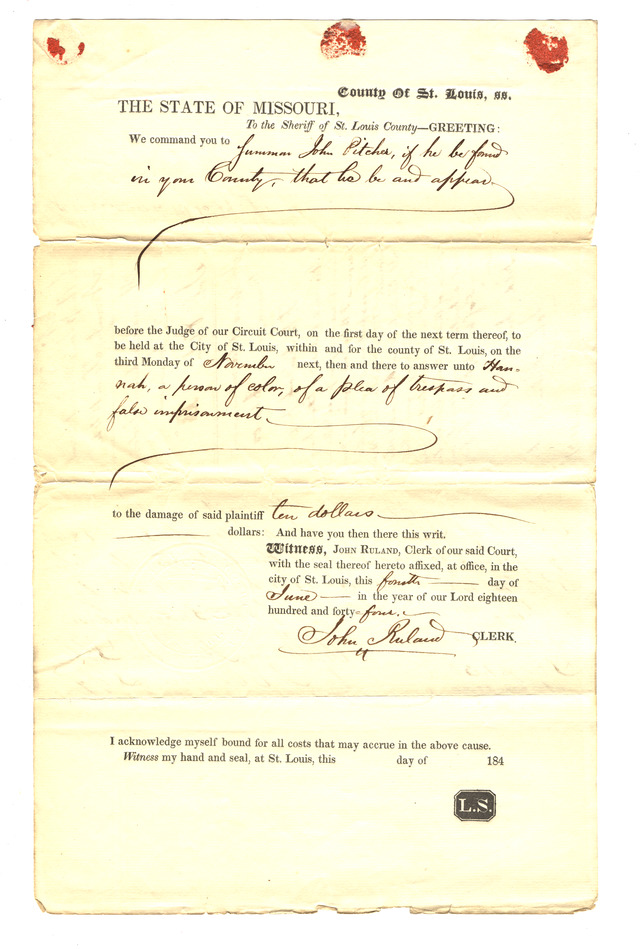 County Of St. Louis, ss.
THE STATE OF MISSOURI,
To the Sheriff of St. Louis County—GREETING:
We command you to Summon John Pitcher, if he be found
in your County, that he be and appear
before the Judge of our Circuit Court, on the first day of the next term thereof, to
be held at the City of St. Louis, within and for the county of St. Louis, on the
third Monday of November next, then and there to answer unto Han-
nah, a person of color, of a plea of trespass and
false imprisonment
to the damage of said plaintiff ten dollars
dollars: And have you then there this writ.
Witness, JOHN RULAND, Clerk of our said Court,
with the seal thereof hereto affixed, at office, in the
city of St. Louis, this fourth day of
June in the year of our Lord eighteen
hundred and forty-four.
John Ruland CLERK.
I acknowledge myself bound for all costs that may accrue in the above cause.
Witness my hand and seal, at St. Louis, this day of 184
L.S.